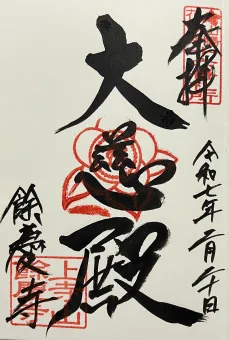 奉拝
大慈殿
令和七年二月二十日
餘慶寺
上寺山
餘慶寺